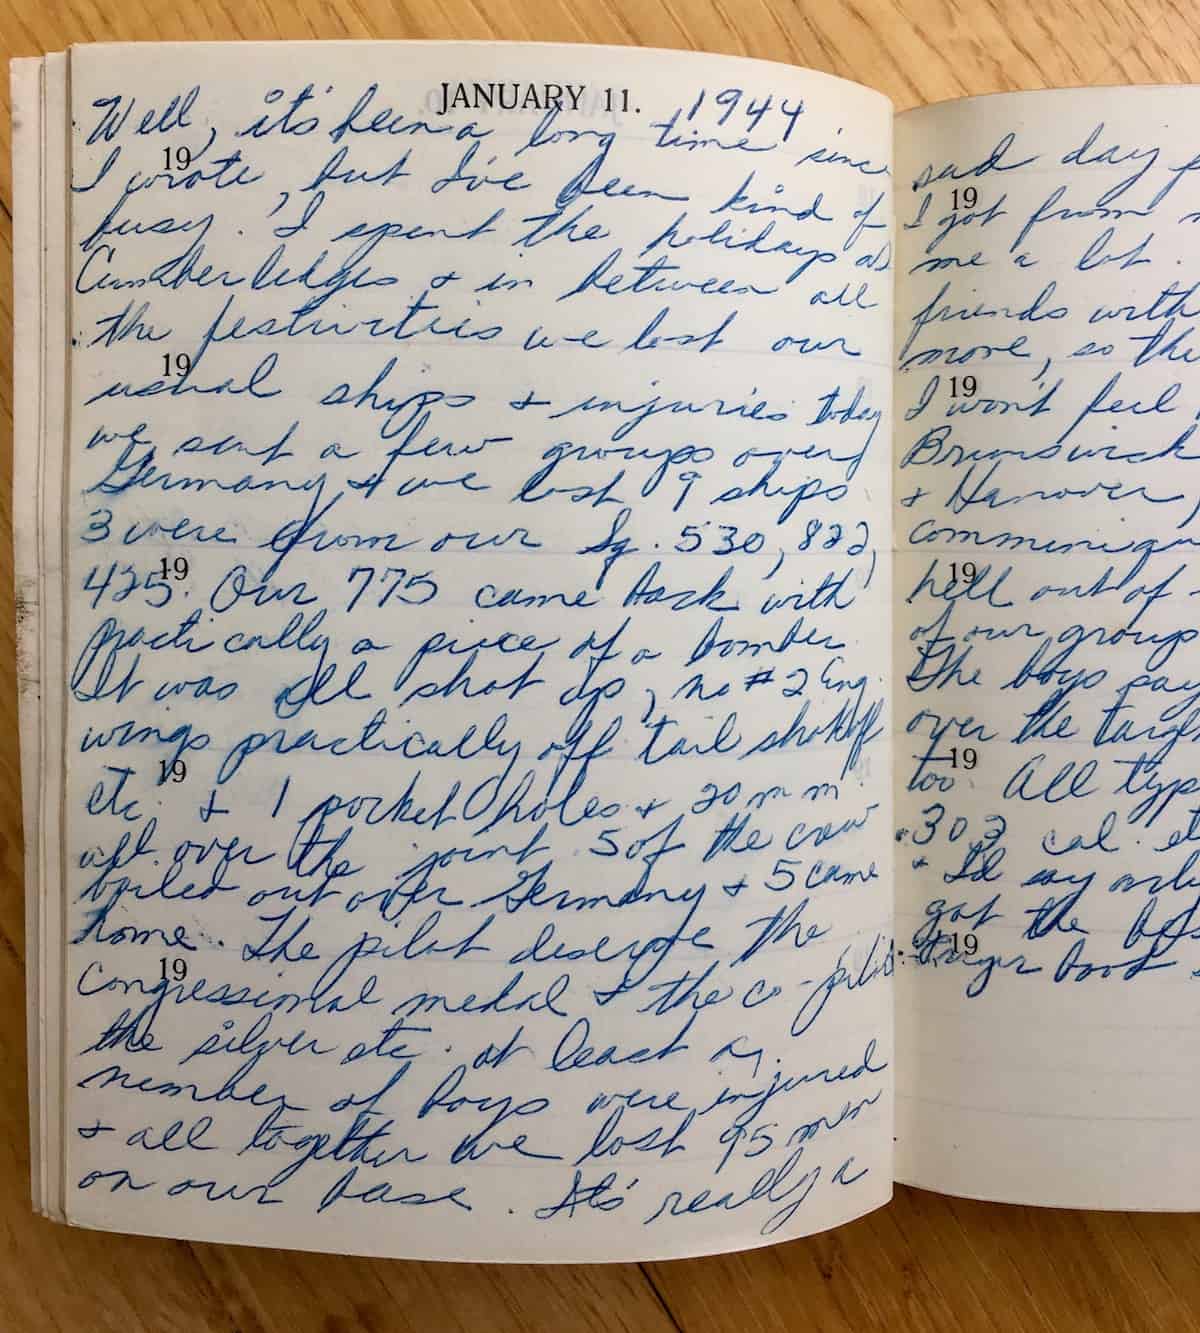 JANUARY 11. 1944
Well, it's been a long time since
19
I wrote, but I've been kind of
busy. I spent the holidays at
Cumberledges & in between all
the festivities we lost our
19
usual ships & injuries today
we sent a few groups over
Germany & we lost 9 ships
3 were from our Sq. 530, 822,
425. Our 775 came back with
19
practically a piece of a bomber.
It was all shot up, no #2 Eng.
wings practically off tail shot off
19
etc. & 1 rocket holes & 20 mm
all over the joint 5 of the crew
bailed out over Germany & 5 came
home. The pilot deserve the
19
Congressional medal & the co-pilot
the silver etc. at least a
number of boys were injured
& all together we lost 95 men
on our base. It's really a
sad day
19
I got from
me a lot.
friends with
more, so the
19
I won't feel
Brunswick
& Hanover,
19
hell out of
of our groups
The boys say
over the
19
too. All
.303 cal.
& I'd say
got the
19